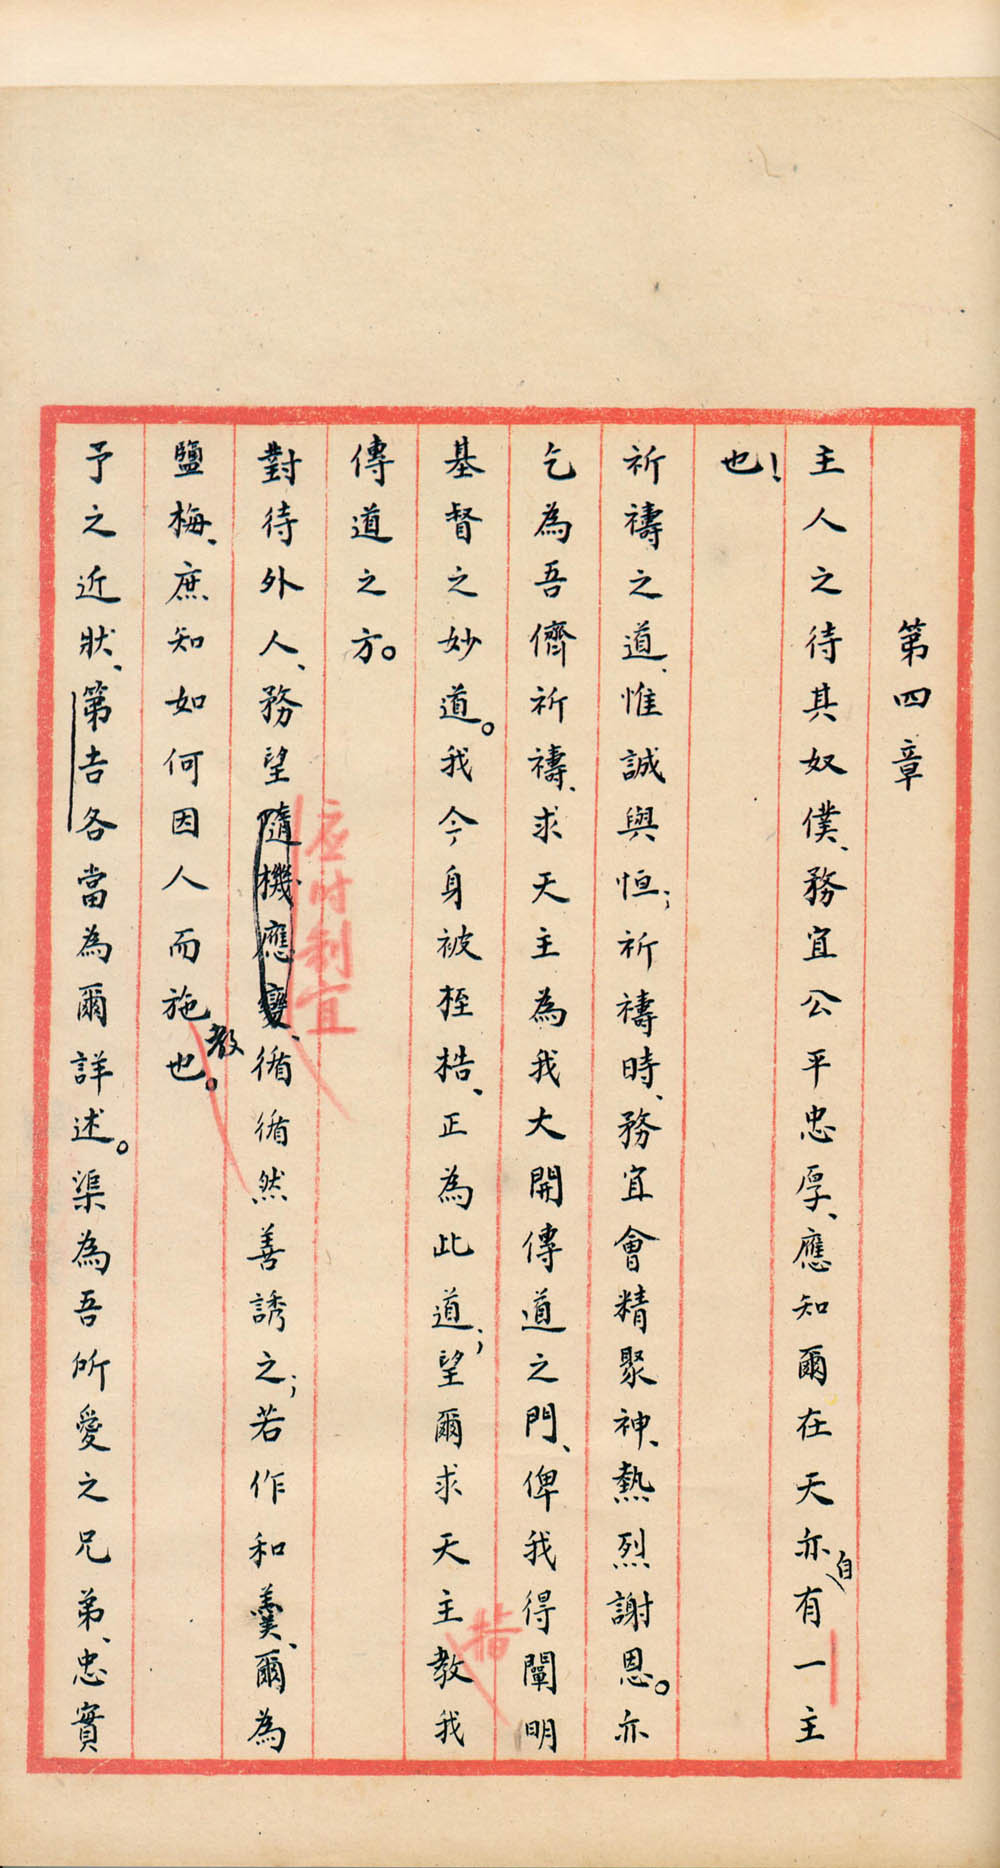 第四章
主人之待其奴僕、務宜公平忠厚、應知爾在天亦自有一主
也！
祈禱之道、惟誠與恒；祈禱時、務宜會精聚神、熱烈謝恩。亦
乞為吾儕祈禱、求天主為我大開傳道之門、俾我得闡明
基督之妙道。我今身被桎梏、正為此道；望爾求天主教我
指
傳道之方。
应时制宜
對待外人、務望隨機應變、循循然善誘之；若作和羹、爾為
鹽梅、庶知如何因人而施教也。
予之近狀、第吉各當為爾詳述。渠為吾所愛之兄弟、忠實